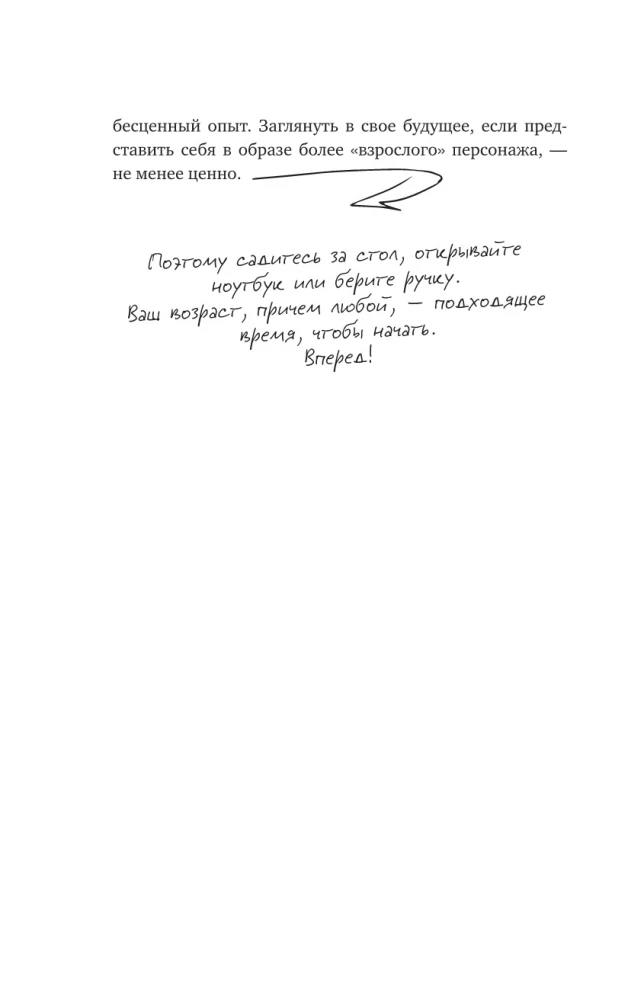 бесценный опыт. Заглянуть в свое будущее, если пред-
ставить себя в образе более «взрослого» персонажа, —
не менее ценно.
Поэтому садитесь за стол, открывайте
ноутбук или берите ручку.
Ваш возраст, причем любой, — подходящее
время, чтобы начать.
Вперед!